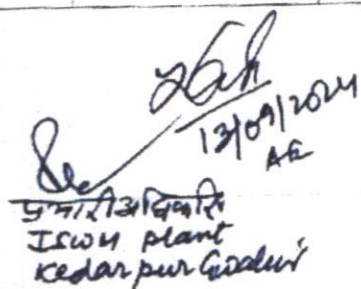 13/09/2024
AE
प्रभारी अधिकारी
ISWM plant
Kedarpur Gwalior